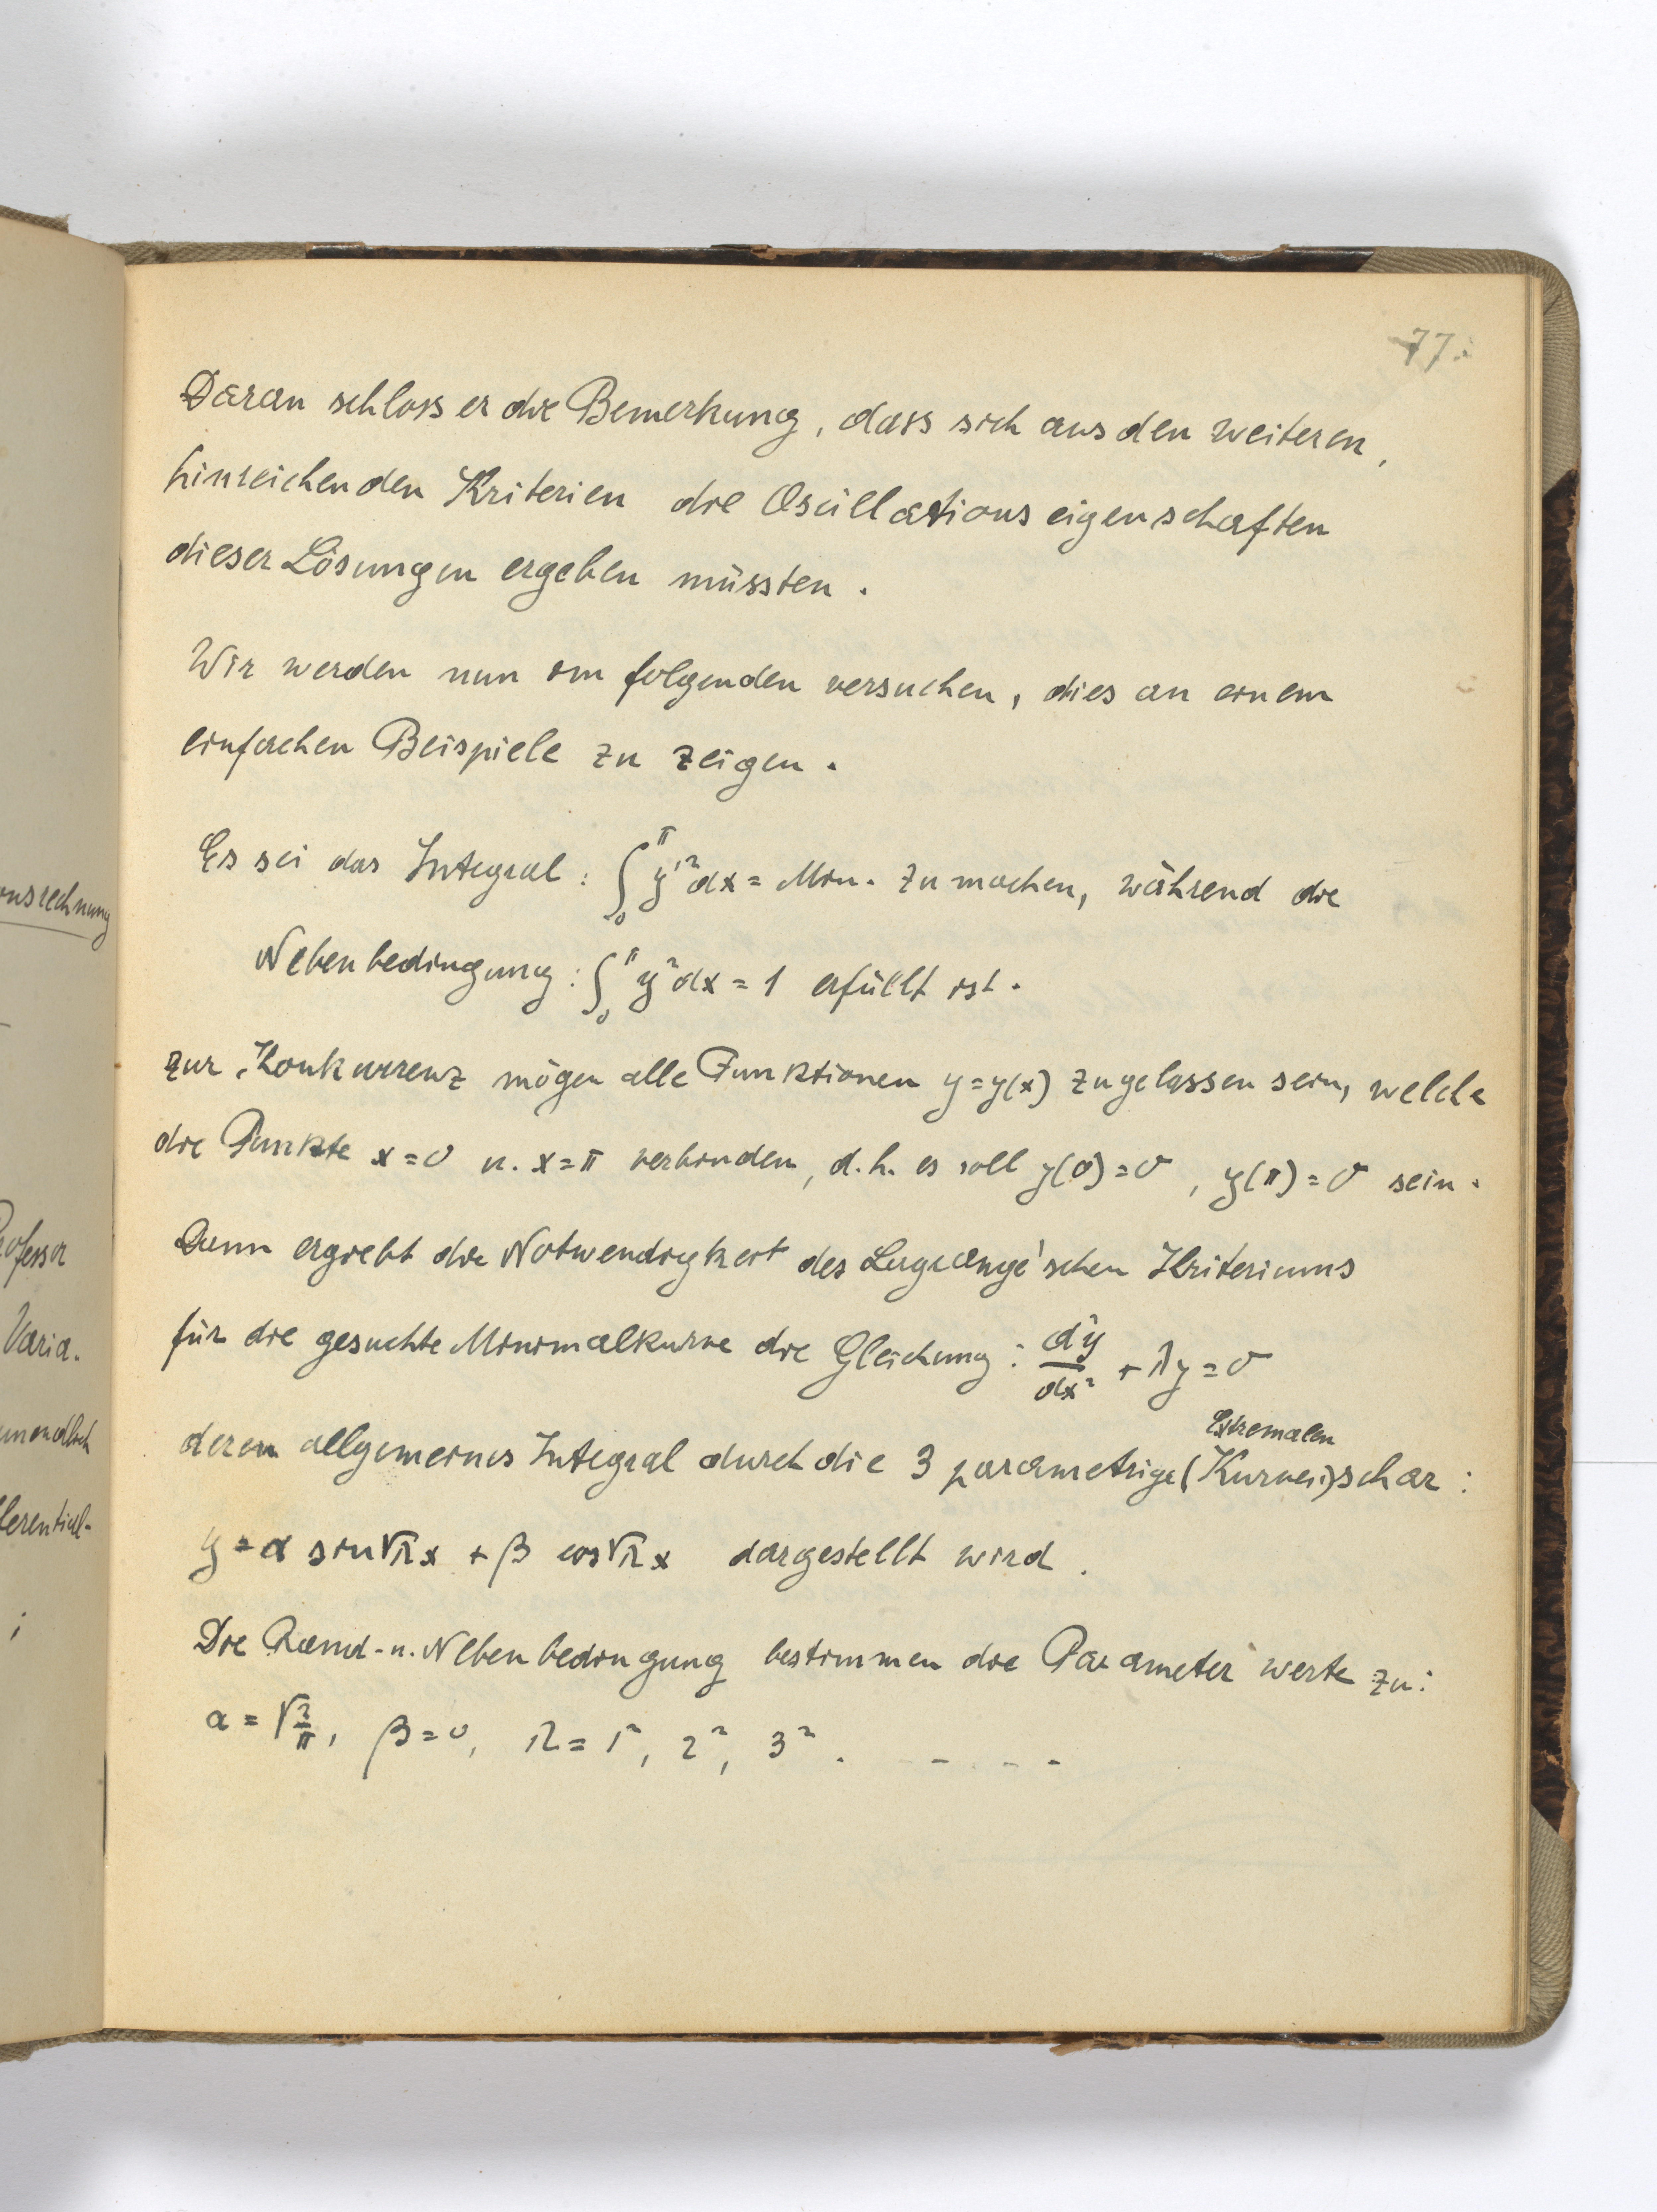 77.
Daran schloss er die Bemerkung, dass sich aus den weiteren,
hinreichenden Kriterien die Oscillationseigenschaften
dieser Lösungen ergeben müssten.
Wir werden nun im folgenden versuchen, dies an einem
einfachen Beispiele zu zeigen.
Es sei das Integral: ∫₀^π y'² dx = Min. zu machen, während die
Nebenbedingung: ∫₀^π y² dx = 1 erfüllt ist.
Zur Konkurrenz mögen alle Funktionen y=y(x) zugelassen sein, welche
die Punkte x=0 u. x=π verbinden, d.h. es soll y(0)=0, y(π)=0 sein.
Dann ergiebt die Notwendigkeit des Lagrange'schen Kriteriums
für die gesuchte Minimalkurve die Gleichung: d²y/dx² + λy = 0
Extremalen
deren allgemeines Integral durch die 3 parametrige (Kurven)schar:
y = α sin√λ x + β cos√λ x dargestellt wird.
Die Rand- u. Nebenbedingung bestimmen die Parameterwerte zu:
α = √(2/π), β=0, λ = 1², 2², 3² . - - - -
onsrechnung
Professor
Varia-
unendlich
fferential-
;